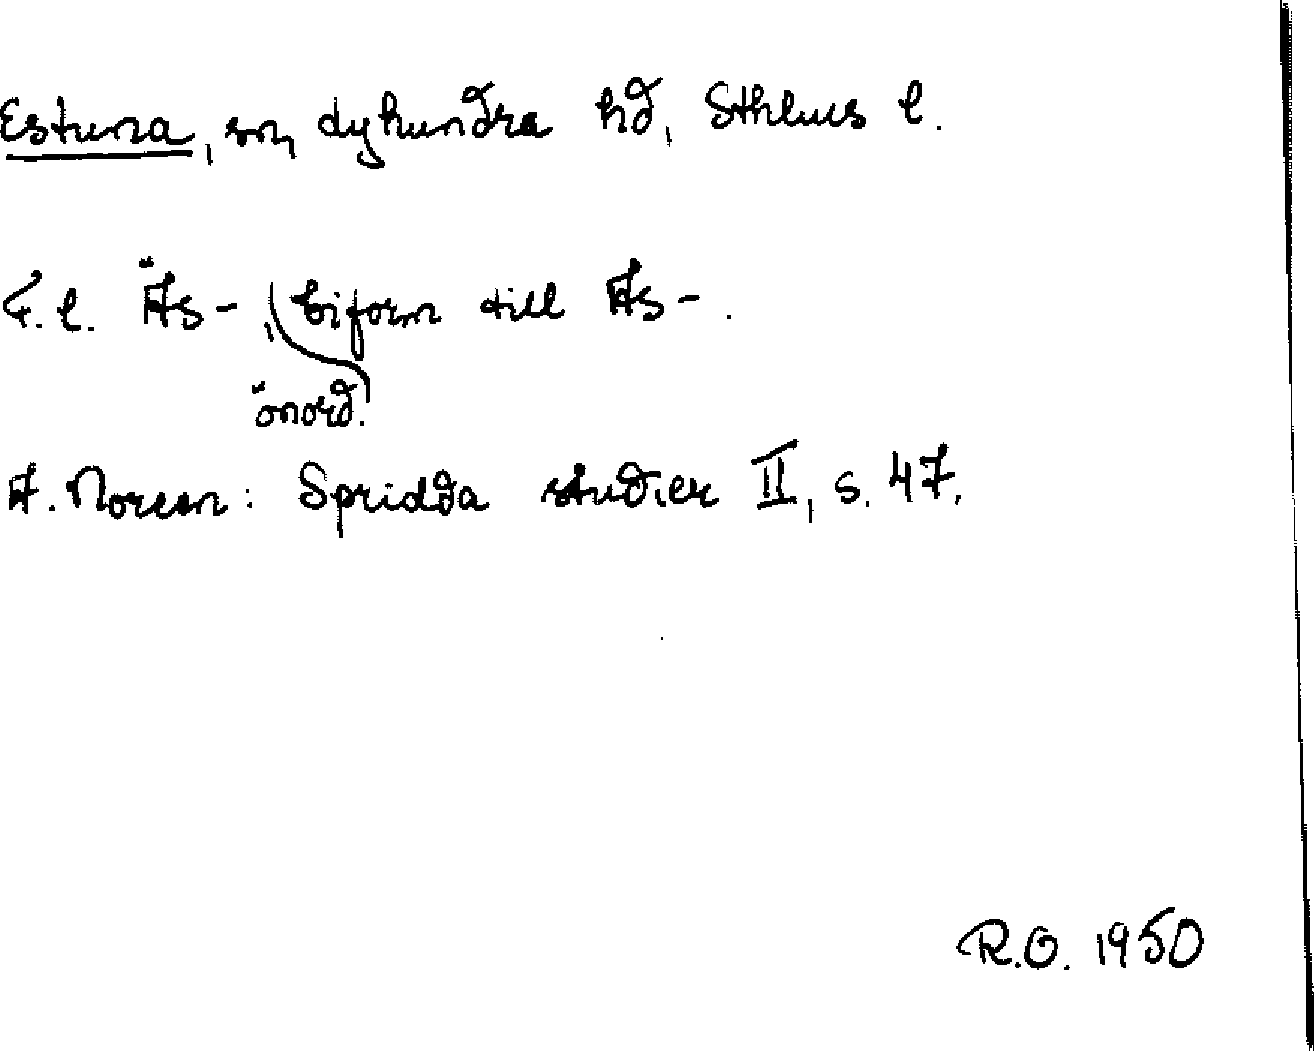 Estuna, sn, Lyhundra hd, Sthlms l.
F.l. Äs-, biform till As-.
önord.
A. Noreen: Spridda studier II, s. 47.
R.O. 1950